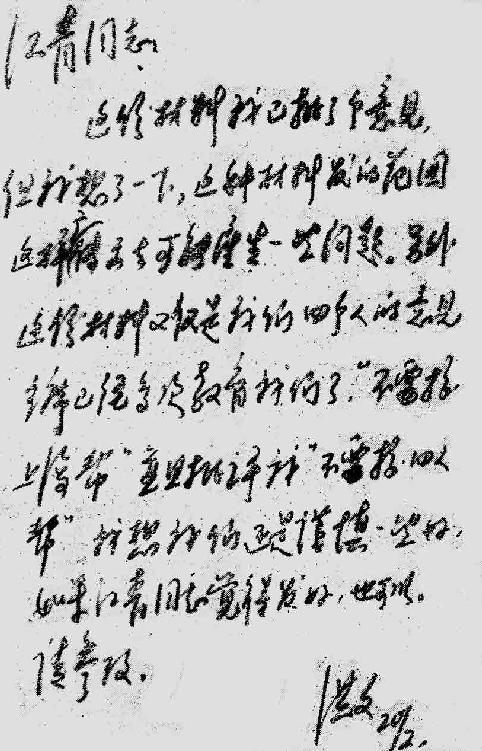 江青同志：
这份材料我已批了个意见，
但我想了一下，这种材料发的范围
这样广可能产生一些问题。另外
这份材料又仅是我们四个人的意见
主席已经多次教育我们了，“不要搞
上海帮”并且批评我“不要搞四人
帮”我想我们还是谨慎一些好，
如果江青同志觉得发好，也可以。
请参改。
洪文 20/2.